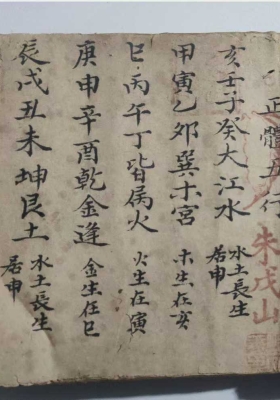 正體五行
朱戌山
亥壬子癸大江水
水土長生
居申
甲寅乙夘巽木宮
木生在亥
巳丙午丁皆属火
火生在寅
庚申辛酉乾金逢
金生在巳
辰戌丑未坤艮土
水土長生
居申